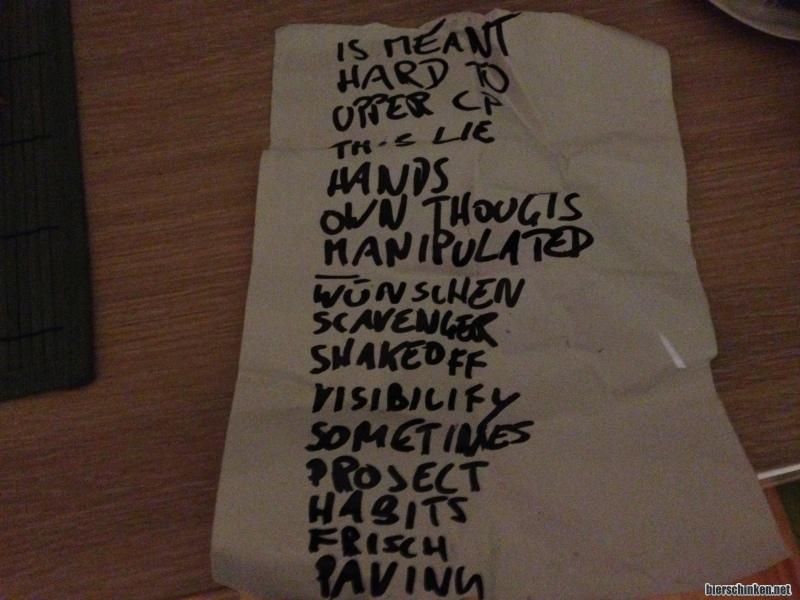 IS MEANT
HARD TO
UPPER CP
THIS LIE
HANDS
OWN THOUGTS
MANIPULATED
WÜNSCHEN
SCAVENGER
SHAKEOFF
VISIBILIFY
SOMETIMES
PROJECT
HABITS
FRISCH
PAVING
bierschinken.net